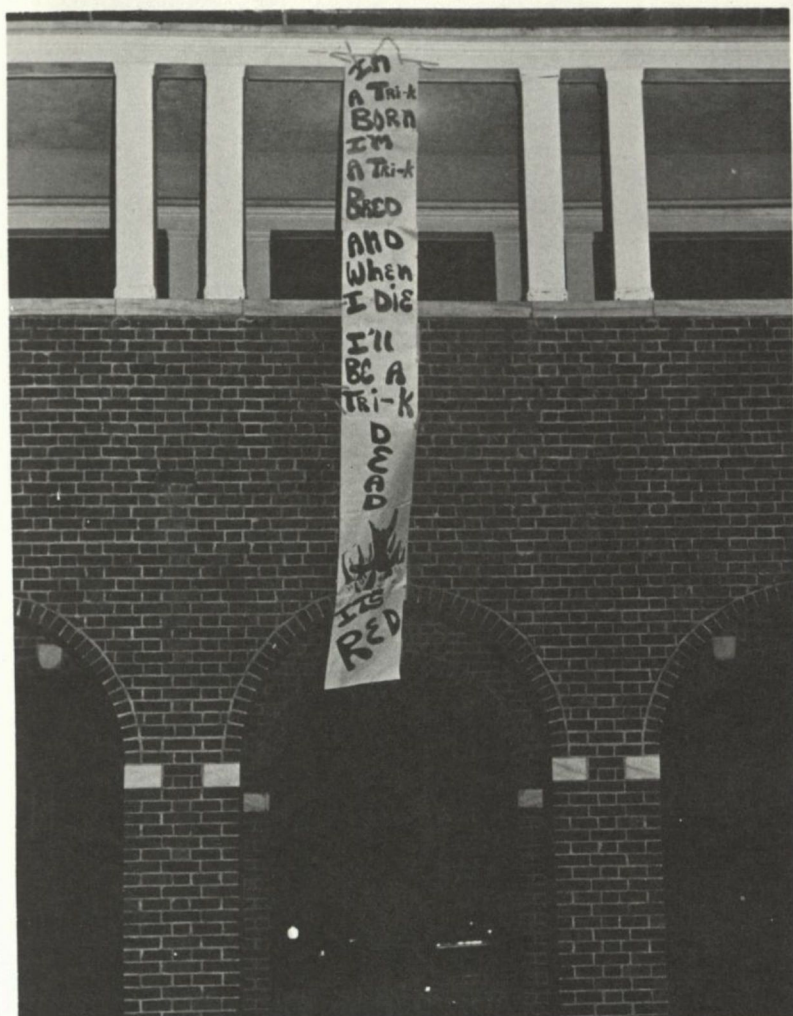 I'm
A TRi-K
BORn
I'm
A TRi-K
BRED
AND
WhEn
I DiE
I'll
BE A
TRi-K
DEAD
ITS
RED